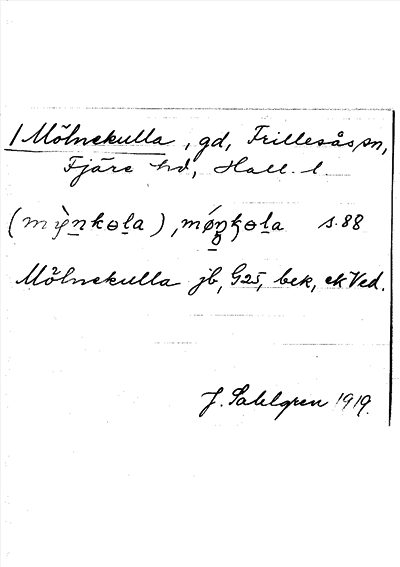 / Mölnekulla, gd, Frillesås sn,
Fjäre hd, Hall. l.
s. 88
Mölnekulla jb, G25, bek, ek Ved.
J. Sahlgren 1919.